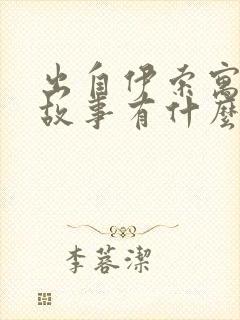 出自伊索寓
故事有什麼
李蓉潔